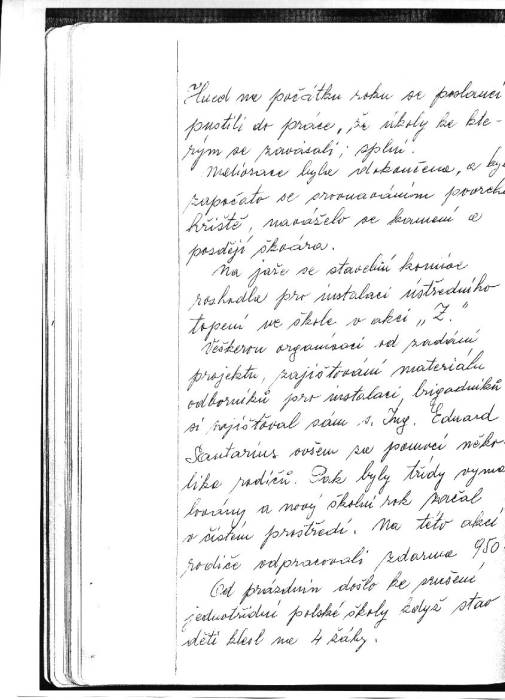 Hned na počátku roku se poslanci
pustili do práce, že úkoly ke kte-
rým se zavázali, splní.
Meliorace byla dokončena, a by
započato se srovnáváním povrchu
hřiště, naváželo se kamení a
později škvára.
Na jaře se stavební komise
rozhodla pro instalaci ústředního
topení ve škole v akci „Z."
Veškerou organisaci od zadání
projektu, zajišťování materiálu
odborníků pro instalaci, brigádníků
si zajišťoval sám s. Ing. Eduard
Santarius ovšem za pomoci něko-
lika rodičů. Pak byly třídy vyma
lovány a nový školní rok začal
v čistém prostředí. Na této akci
rodiče odpracovali zdarma 950
Od prázdnin došlo ke zrušení
jednotřídní polské školy když stav
dětí klesl na 4 žáky.